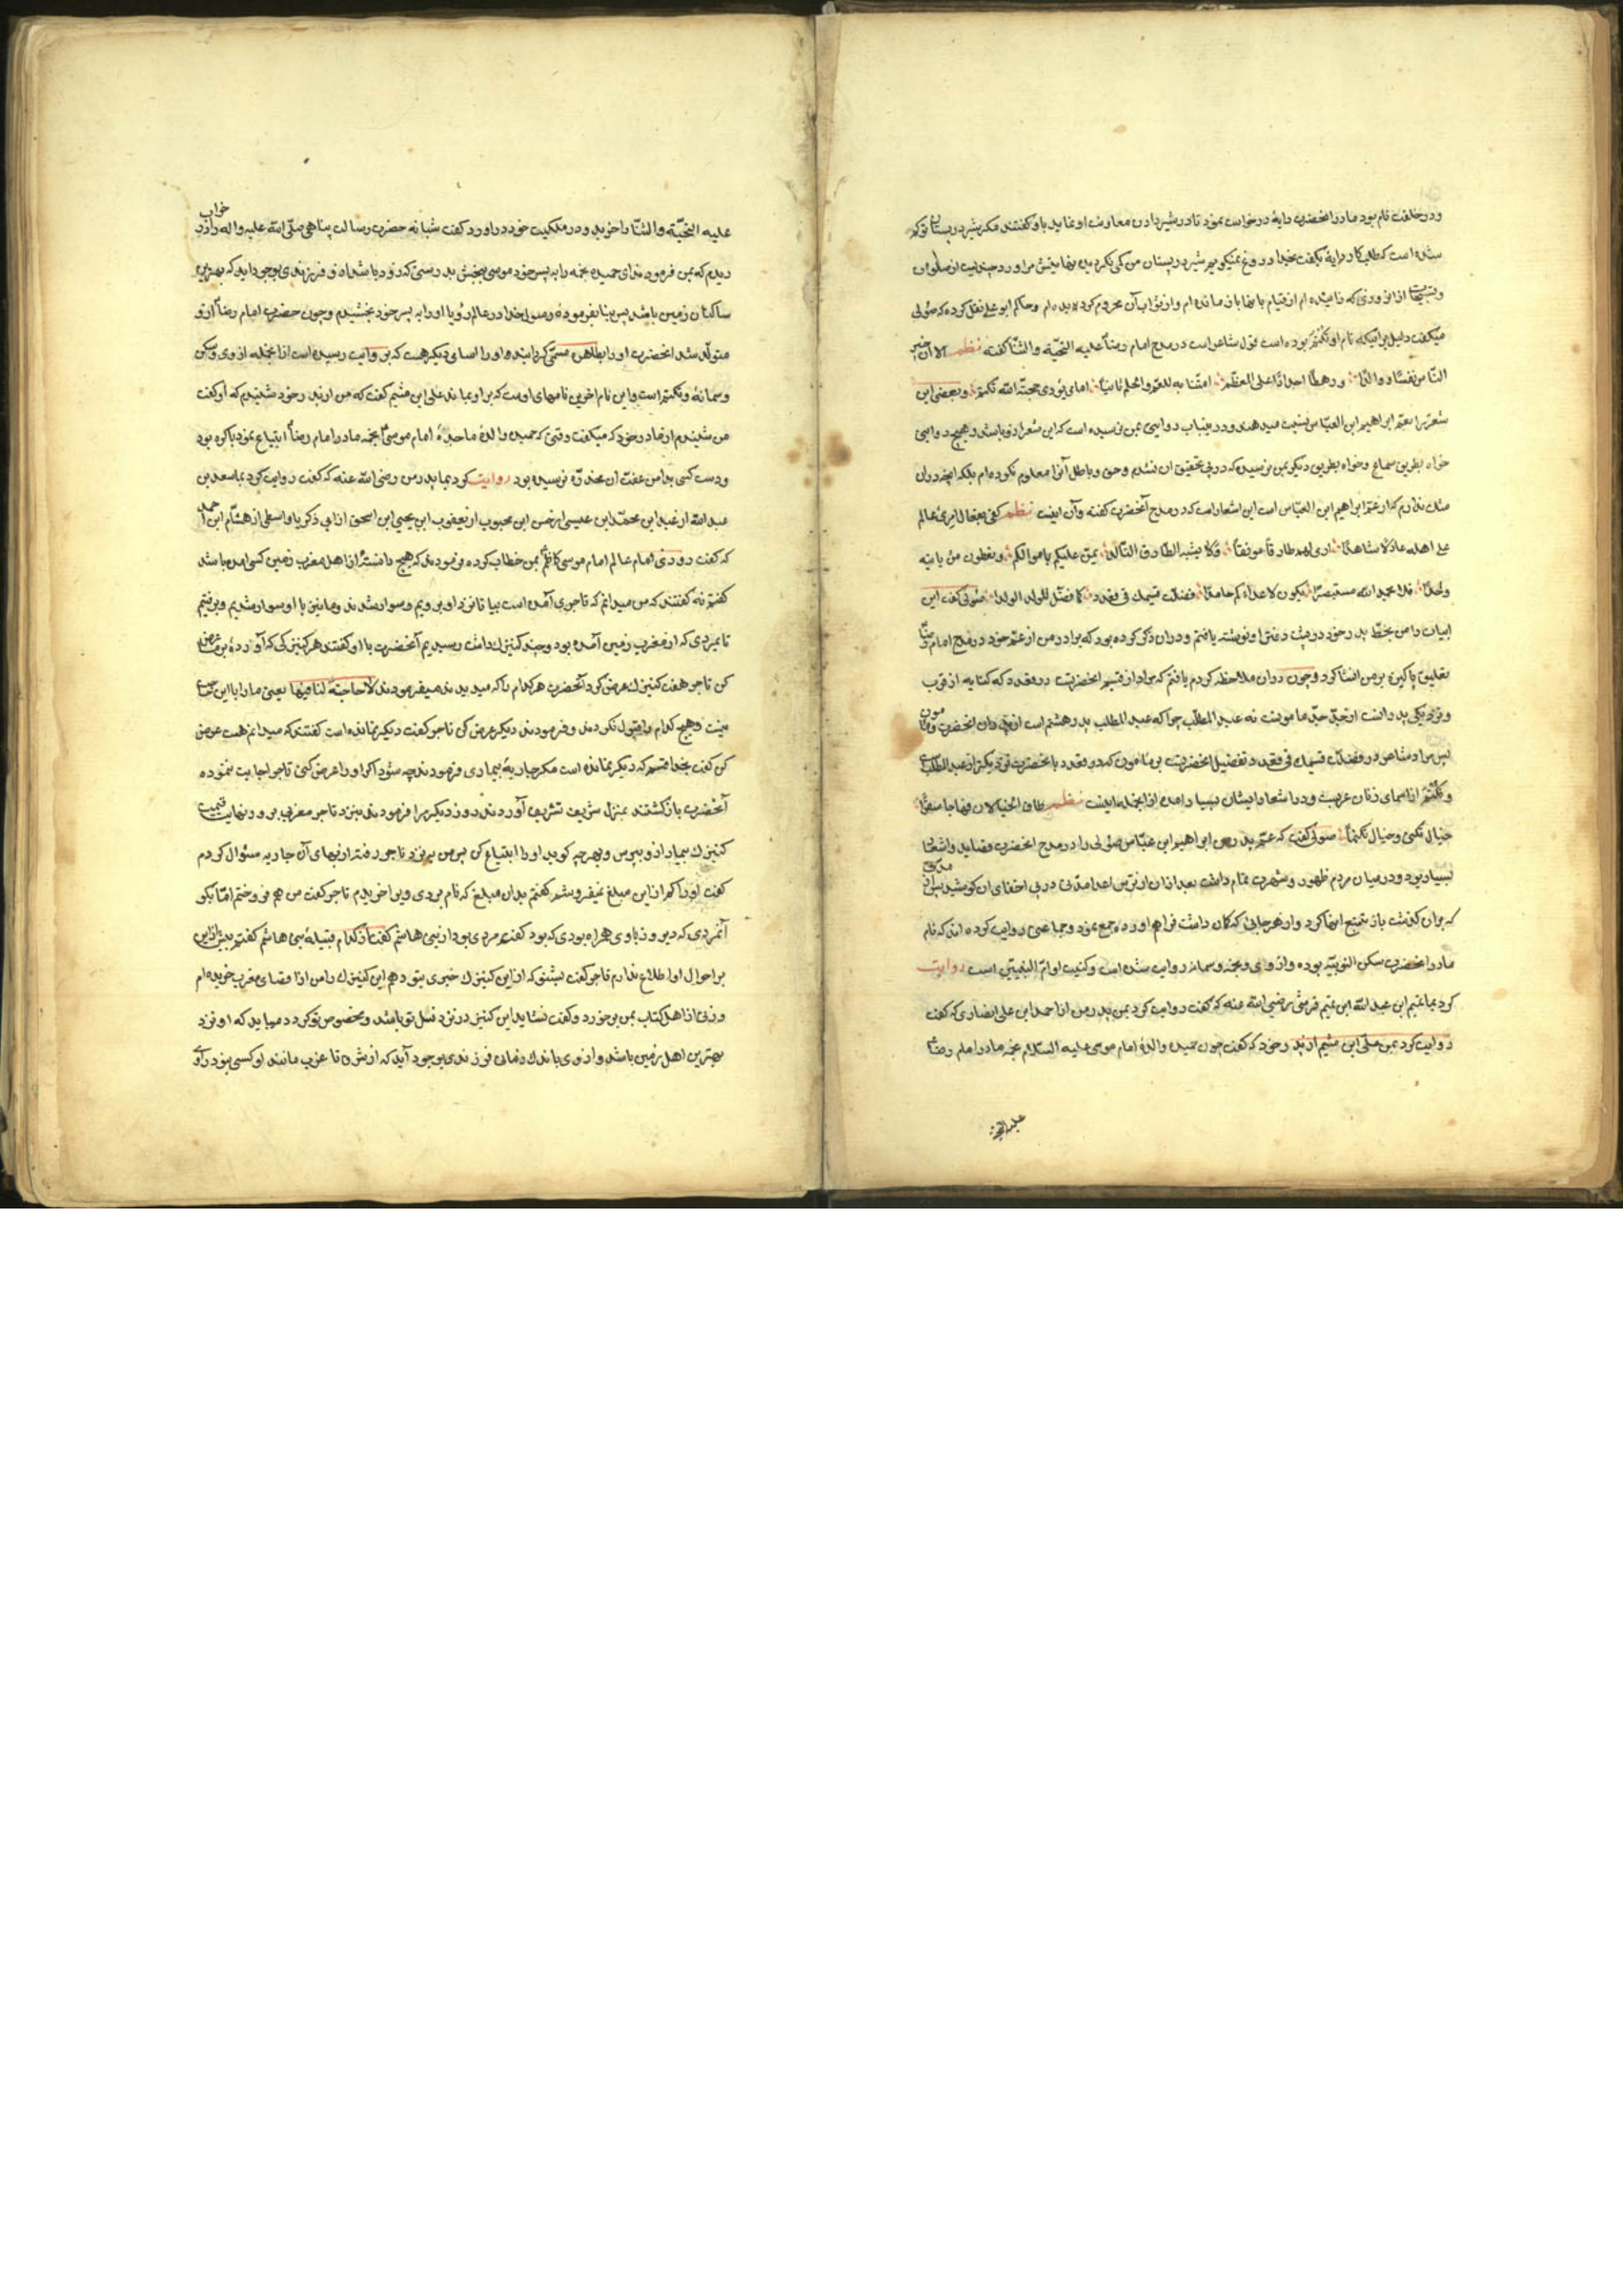 ودر خلقت تام بود مادر انحضرت دایهٔ درخواست نمود تا در شیر دادن معاونت او نماید باو گفتند مگر شیر در پستان تو کم
شده است که طلبکار دایهٔ بکفت بخدا دروغ نمیکویم شیر در پستان من کمی نکردیده نهایتش مرا وردی چند است از صلوات
وتسبیحات از ان روزی که زائیده ام از قیام بانها باز مانده ام واز ثواب آن محروم کردیده ام وحاکم ابو علی نقل کرده که صولی
میکفت دلیل برانیکه نام او تکتم بوده است قول شاعر است در مدح امام رضا علیه التحیّة والثنا کفته نظم الا ان خیر
النّاس نفسًا ووالدًا ورهطًا اجدادًا علی المعظّم اتتنا به للعلم والحلم ثامنًا امامًا یؤدی حجّة الله تکتم وبعضی این
شعر را بعمّ ابراهیم ابن العبّاس نسبت میدهند ودرینباب روایتی بمن نرسیده است که این شعر از او باشد وهیچ روایتی
خواه بطریق سماع وخواه بطریق دیکر بمن نرسیده که در پی تحقیق ان نشدم وحق وباطل آنرا معلوم نکرده ام بلکه انچه دران
شک ندارم که از عمّ ابراهیم ابن العبّاس است این اشعار است که در مدح آنحضرت کفته وآن اینست نظم کفی بفعال امرئ عالم
علی اهله عادلًا شاهدًا اری لهم طارفًا مونقًا ولا یشبه الطارف التالدا یمنّ علیکم باموالکم ویعطون من مایة
واحدًا فلا یحمد الله مستبصرًا یکون لاعدائکم حامدًا فضلت قسیمک فی قعدد کما فضّل الوالد الوالدا صولی کفت این
ابیات را من بخطّ پدر خود در پشت دفتر او نوشته یافتم ودران ذکر کرده بود که برادر من از عمّ خود در مدح امام رضا
تعلیق پاکیزه بر من انشا کرد وچون دران ملاحظه کردم یافتم که مراد از قسیم انحضرت در قعدد که کنایه از قرب
ونزدیکی پدرانست از جدّ جدّ مامونست نه عبد المطلّب چرا که عبد المطلب پدر هشتم است از پدران انحضرت ومامون
پس مراد شاعر در فضلت قسیمک فی قعدد تفضیل انحضرتست بر مامون که در قعدد با انحضرت نزدیکتر از عبد المطّلب است
وتکتم از اسمای زنان عربست ودر اشعار ایشان بسیار امده از انجمله اینست نظم طاف الخیالان فهاجا سقمًا
خیال تکنی وخیال تکتما صولی کفت که عمّ پدرم ابراهیم ابن عبّاس صولی را در مدح انحضرت قصاید واشعار
بسیار بود ودر میان مردم ظهور وشهرت تمام داشت بعد ازان از ترس اعدا مدّتی در پی اخفای ان کوشید پس از مدتی
که بران کذشت باز تتبع انها کرد واز هر جائی که کمان داشت فراهم اورده جمع نمود وجماعتی روایت کرده اند که نام
مادر انحضرت سکن النوبیّه بوده واروی ونجمه وسمانه روایت شده است وکنیت او امّ البنین است روایت
کرد بما تمیم ابن عبد الله ابن تمیم قرشی رضی الله عنه که کفت روایت کرد بمن پدر من از احمد ابن علی انصاری که کفت
روایت کرد بمن علی ابن میثم از پدر خود که کفت چون حمیده والدهٔ امام موسی علیه السّلام نجمه مادر امام رضا
علیه التحیّة
علیه التحیّة والثنا را خرید ودر ملکیت خود دراورد کفت شبانه حضرت رسالت پناهی صلّی الله علیه واله را در خواب
دیدم که بمن فرمودند ای حمیده نجمه را به پسر خود موسی ببخش بدرستی که زود باشد از او فرزندی بوجود اید که بهترین
ساکنان زمین باشد پس بنا بفرمودهٔ رسول خدا در عالم رؤیا او را به پسر خود بخشیدم وچون حضرت امام رضا از او
متولّد شد انحضرت او را بطاهره مسمّی کردانید واو را اسامی دیکر هست که بروایت رسیده است از انجمله اروی وسکن
وسمانه وتکتم است واین نام اخرین نامهای اوست که بر او نماند علی ابن میثم کفت که من از پدر خود شنیدم که او کفت
من شنیدم از مادر خود که میکفت وقتی که حمیده والدهٔ ماجدهٔ امام موسی نجمه مادر امام رضا ابتیاع نمود باکره بود
ودست کسی بدامن عفّت ان مخدّره نرسیده بود روایت کرد بما پدر من رضی الله عنه که کفت روایت کرد بما سعد بن
عبد الله از احمد ابن محمّد ابن عیسی از حسن ابن محبوب از یعقوب ابن یحیی ابن اسحق از ابی ذکریا واسطی از هشّام ابن احمر
که کفت روزی امام عالم امام موسی کاظم بمن خطاب کرده فرمودند که هیچ دانستهٔ از اهل مغرب زمین کسی امده باشد
کفتم نه کفتند که من میدانم که تاجری آمده است بیا تا نزد او برویم وسوار شدند وما نیز با او سوار شدیم ورفتیم
تا بمردی که از مغرب زمین آمده بود وچند کنیزک داشت رسیدیم آنحضرت با او کفتند هر کنیزکی که آوردهٔ بر ما عرض
کن تاجر هفت کنیزک عرض کرد آنحضرت هر کدام را که میدیدند میفرمودند لاحاجة لنا فیها یعنی ما را با این حاجت
نیست وهیچ کدام را قبول نکردند وفرمودند دیکر عرض کن تاجر کفت دیکر نمانده است کفتند که میدانم هست عرض
کن کفت بخدا قسم که دیکر نمانده است مکر جاریهٔ بیماری فرمودند چه شود اکر او را عرض کنی تاجر اجابت ننموده
آنحضرت باز کشتند بمنزل شریف تشریف آوردند روز دیکر مرا فرمودند بنزد تاجر مغربی برو ونهایت قیمت
کنیزک بیمار از او بپرس وبهر چه کوید او را ابتیاع کن پس من بنزد تاجر رفته از بهای آن جاریه سئوال کردم
کفت او را کم از این مبلغ نمیفروشم کفتم بدان مبلغ که نام بردی ویرا خریدم تاجر کفت من هم فروختم امّا بکو
آنمردی که دیروز با وی همراه بودی که بود کفتم مردی بود از بنی هاشم کفت از کدام قبیلهٔ بنی هاشم کفتم بیش از این
بر احوال او اطلاع ندارم تاجر کفت بشنو که از این کنیزک خبری بتو دهم این کنیزک را من از اقصای مغرب خریده ام
وزنی از اهل کتاب بمن برخورد وکفت نشاید این کنیز در نزد مثل تو باشد ومخصوص تو کردد میباید که او نزد
بهترین اهل زمین باشد واز وی باندک زمانی فرزندی بوجود آید که از شرق تا غرب مانند او کسی نبود راوی